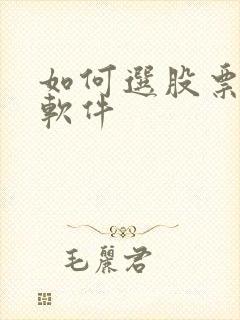 如何選股票
軟件
毛麗君